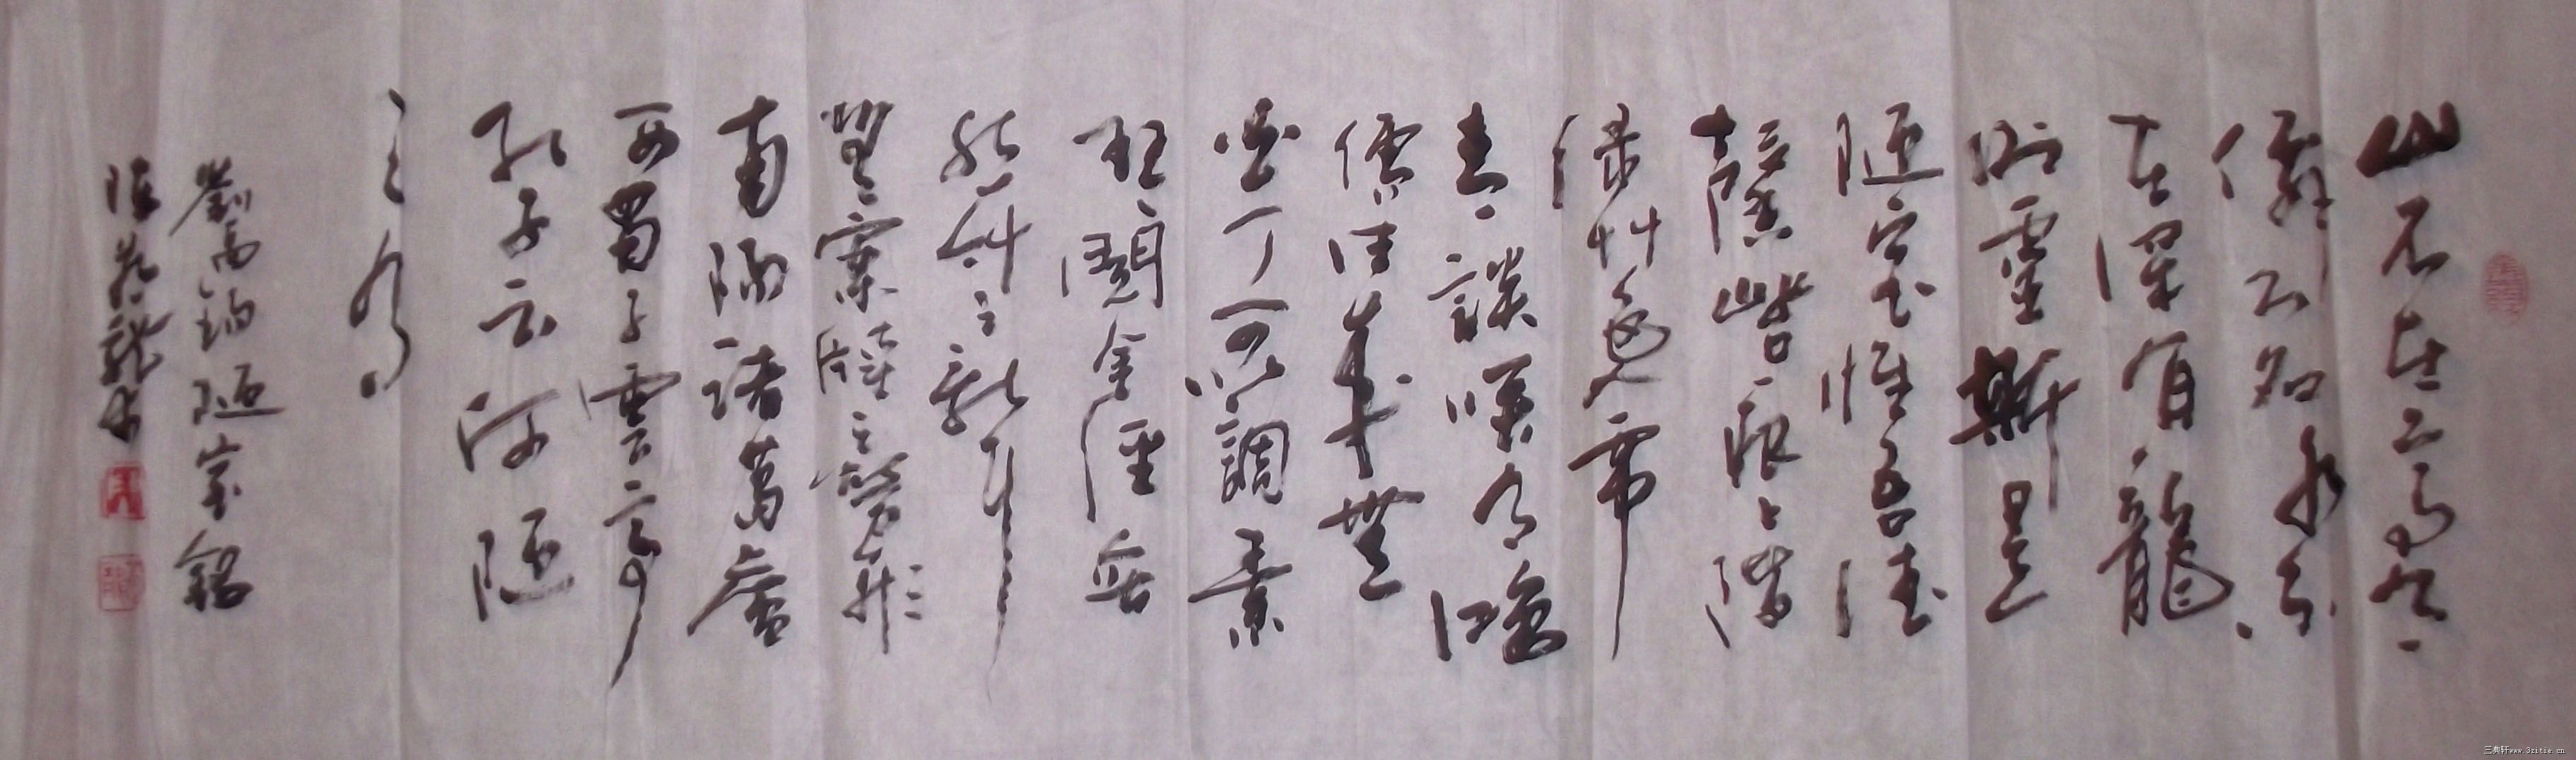 山不在高有
僊则名水不
在深有龍
則靈斯是
陋室惟吾德
馨苔痕上階
綠草色入簾
青談笑有鴻
儒往来無
白丁可以調素
琴閱金經無
絲竹之亂耳
無案牘之勞形
南陽諸葛廬
西蜀子雲亭
孔子云何陋
之有
劉禹錫陋室銘
三典轩www.3zitie.cn